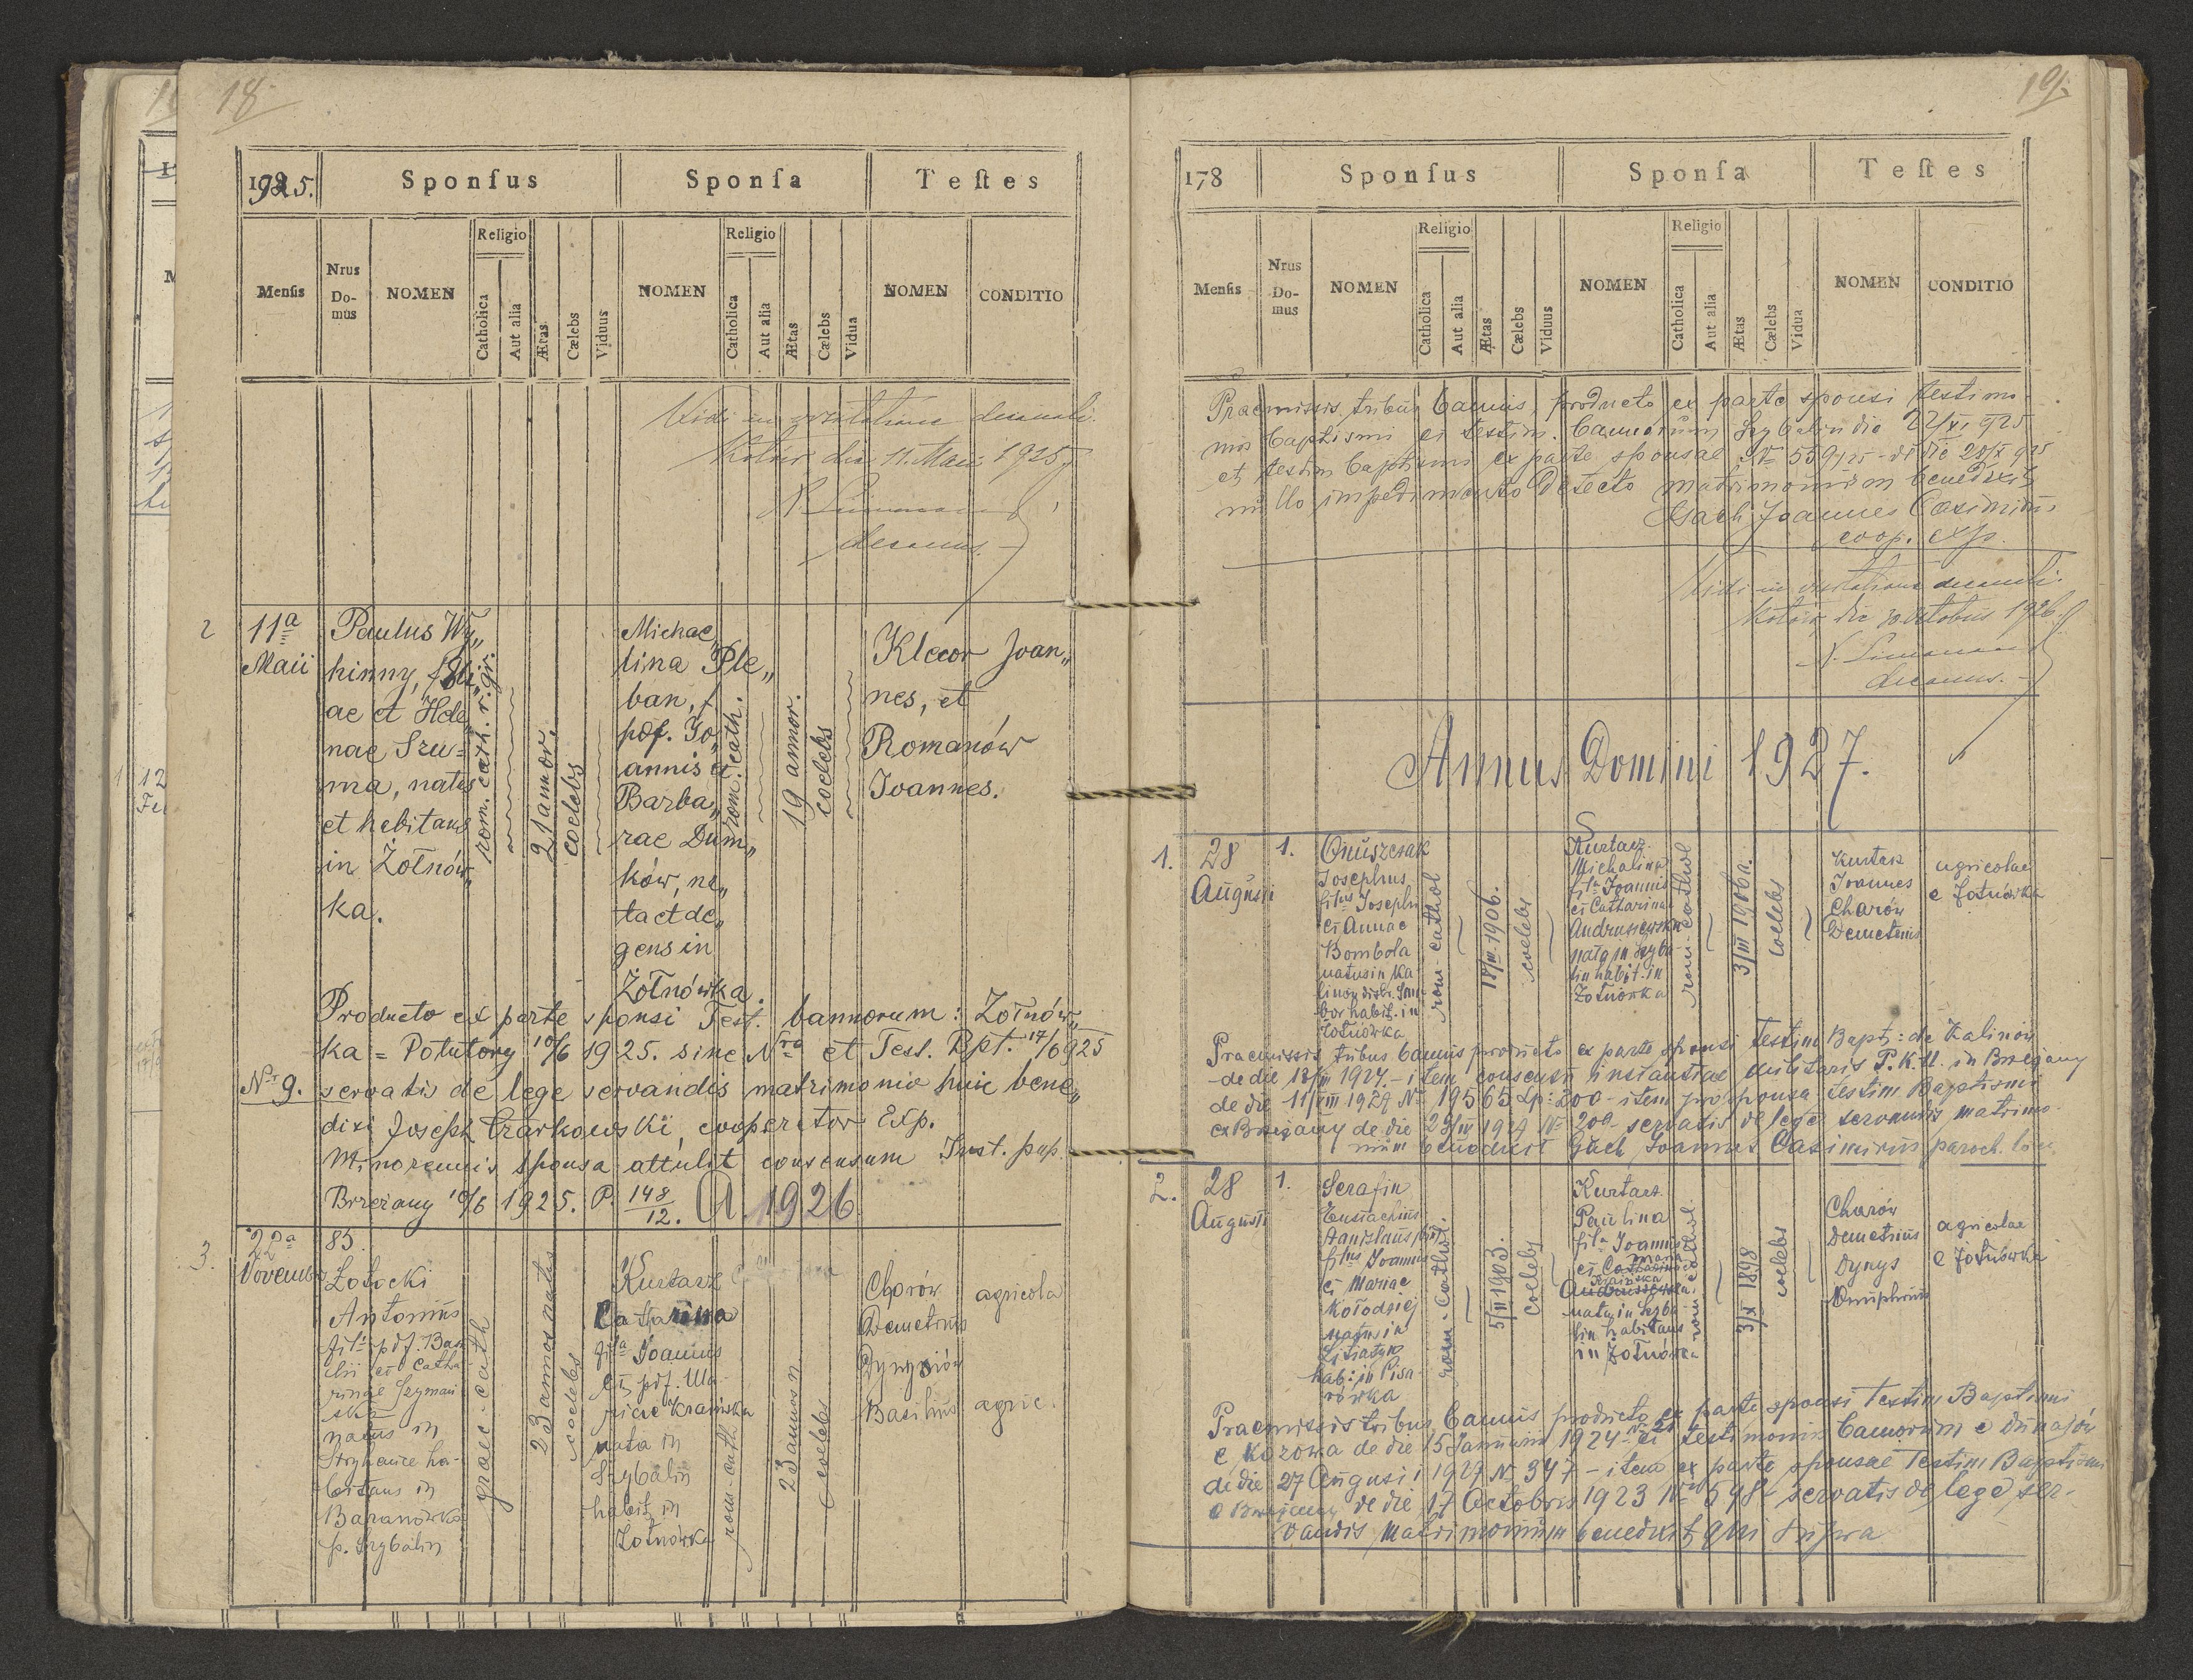 18
1925.
Sponſus
Sponſa
Teſtes
Menſis
Nrus Do-mus
NOMEN
Religio
Catholica
Aut alia
Ætas
Cælebs
Viduus
NOMEN
Religio
Catholica
Aut alia
Ætas
Cælebs
Vidua
NOMEN
CONDITIO
Vidi in visitatione decanali.
Kotów die 11. Maii 1925
decanus.
2
11a
Maii
Paulus Wy„
hinny, f. Eli„
ae et Hele„
nae Szu=
ma, natus
et habitans
in Żołnów„
ka.
rom. cath. r. gr.
21 annor.
coelebs
Michae„
lina Ple„
ban, f.
pdf. Jo„
annis et
Barba„
rae Dum„
ków, na„
ta et de„
gens in
Żołnówka.
rom. cath.
19 annor.
coelebs
Klecor Joan„
nes, et
Romanów
Joannes.
Producto ex parte sponsi Test. bannorum: Żołnów„
ka = Potutory 10/6 1925. sine Nro et Test. Bpt. 17/6 925
Nr 9. servatis de lege servandis matrimonio huic bene„
dixi Joseph Czarkowski, cooperator Exp.
Minorennis sponsa attulit consensum Inst. pup.
Brzeżany 10/6 1925. P. 148/12. A. 1926
3.
22a
Novemb
85.
Łotocki
Antonius
fils pdf. Basi
lii et Catha
rinae Szymań
ska
natus in
Stryhańce ha-
bitans in
Baranówka
p. Szybalin
graec-cath
23 annos natus
coelebs
Kurtasz
Catharina
fila Joannis
et pdf. Ma
riae Krasińska
nata in
Szybalin
habit. in
Żołnówka
rom-cath
23 annos n
coelebs
Charów
Demetrius
Dynysiów
Basilius
agricola
agric.
19.
178
Sponſus
Sponſa
Teſtes
Menſis
Nrus Do-mus
NOMEN
Religio
Catholica
Aut alia
Ætas
Cælebs
Viduus
NOMEN
Religio
Catholica
Aut alia
Ætas
Cælebs
Vidua
NOMEN
CONDITIO
Praemissis tribus bannis, producto ex parte sponsi testimo-
nio baptismi et testim. bannorum Szybalin dio 22/XI 925
et testim baptismi ex parte sponsae No 559/25 - de die 20/X 925
nullo impedimento detecto matrimonium benedixit
Gach Joannes Casimirus
coop. exp.
Vidi in visitatione decanali.
Kotów, die 30 Octobris 1926.
decanus.
Annus Domini 1927.
1.
28
Augusti
1.
Onuszczak
Josephus
filus Josephi
et Annae
Bombola
natus in Ka
linów distr. Sam
bor habit. in
Żołnówka
rom-cathol
18/III 1906.
coelebs
Kurtasz
Michalina
fila Joannis
et Catharinae
Andrusiewska
nata in Szyba
lin habit. in
Żołnówka
rom-cathol
3/III 1906 a.
coelebs
Kurtasz
Joannes
Charów
Demetrius
agricolae
e Żołnówka
Praemissis tribus bannis producto ex parte sponsi Testim Bapt: de Kalinów
de die 18/VIII 1927. - item consensu instantiae militaris P.K.U. in Brzeżany
de die 11/VIII 1927 No 19565 - item pro sponsa testim Baptismi
ex Brzeżany de die 29/IV 1927 No 200 - servatis de lege servandis matrimo-
nium benedixit Gach Joannes Casimirus paroch. loci
2.
28
Augusti
1.
Serafin
Eustachius
Stanislaus
filus Joannis
et Mariae
Kołodziej
natus in
Litiatyn
hab: in Pisa
rówka
rom-cathol.
5/II 1903.
coelebs
Kurtasz
Paulina
fila Joannis
et Catharinae Maria
Andrusiewska Krasińska
nata in Szyba
lin habitans
in Żołnówka
rom-cathol
3/X 1898
coelebs
Charów
Demetrius
Dynys
Onuphrius
agricolae
e Żołnówka
Praemissis tribus bannis producto ex parte sponsi Testim Baptismi
e Kozowa de die 15 Januarii 1924 No 21 et testimonii bannorum e Dunajów
de die 27 Augusti 1927 No 347 - item ex parte sponsae Testim Baptismi
e Brzeżany de die 17 Octobris 1923 No 598 servatis de lege ser-
vandis matrimonium benedixit qui supra